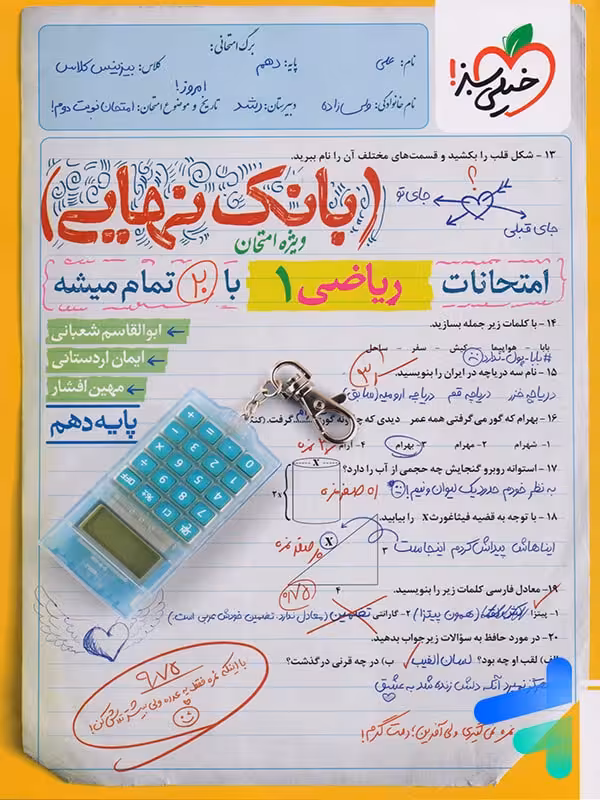 خیلی سبز!
برگ امتحانی:
نام: علی
پایه: دهم
کلاس: بیزینس کلاس
نام خانوادگی: ولی زاده
دبیرستان: رشد
تاریخ و موضوع امتحان: امروز! امتحان نوبت دوم!
۱۳ - شکل قلب را بکشید و قسمت‌های مختلف آن را نام ببرید.
؟
جای تو
جای قبلی
(بانک نهایی)
ویژه امتحان
امتحانات ریاضی ۱ با ۲۰ تمام میشه
ابوالقاسم شعبانی
ایمان اردستانی
مهین افشار
پایه دهم
۱۴ - با کلمات زیر جمله بسازید.
بابا - هواپیما - کیش - سفر - ساحل
#بابا_پول_ندارد
۱۵ - نام سه دریاچه در ایران را بنویسید.
دریاچه خزر دریاچه قم دریاچه ارومیه (سابق)
۱۶ - بهرام که گور می‌گرفتی همه عمر دیدی که چگونه گور بهرام گرفت.
۱- شهرام ۲- مهرام ۳- بهرام ۴- آرام
۱۷ - استوانه روبرو گنجایش چه حجمی از آب را دارد؟
به نظر خودم حدود یک لیوان و نیم!
x
۲x
۱۸ - با توجه به قضیه فیثاغورث x را بیابید.
ایناهاش پیداش کردم اینجاست
x
۳
۴
۱۹ - معادل فارسی کلمات زیر را بنویسید.
۱- پیتزا (همون پیتزا) ۲- گارانتی تضمین (معادل ندارد. تضمین خودش عربی است.)
۲۰ - در مورد حافظ به سؤالات زیر جواب بدهید.
الف) لقب او چه بود؟ لسان الغیب ب) در چه قرنی در گذشت؟
هرگز نمیرد آنکه دلش زنده شد به عشق
نمره نمی‌گیری ولی آفرین؛ دمت گرم!
۹/۷۵
با اینکه نمره فقط یه عدده ولی بیشتر تلاش کن!